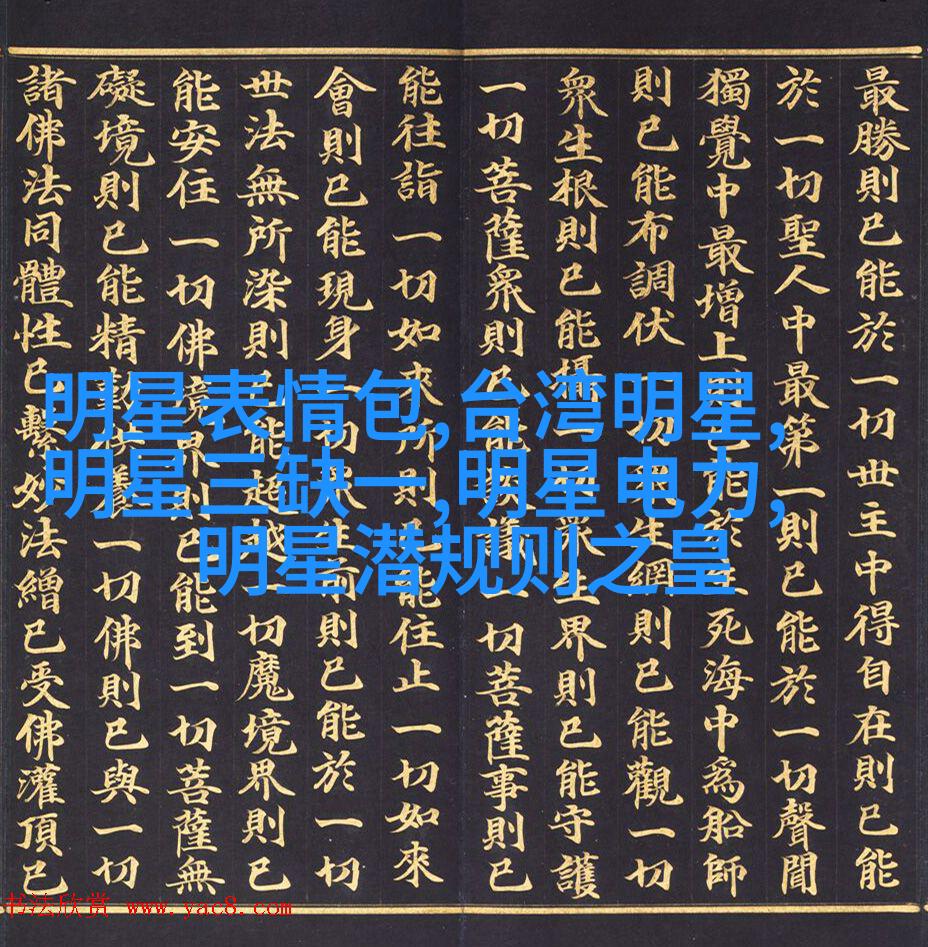 最勝則已能於一切世主中得自在則已能
於一切聖人中最第一則已能於一切聲聞
獨覺中最增上則已能於生死海中爲船師
則已能布調伏切衆生網則已能觀一切
衆生根則已能攝一切衆生界則已能守護
一切菩薩衆則已能一切菩薩事則已
能往詣一切如來所則已能住止一切如來
會則已能現身一切衆生前則已能於一切
世法無所染則已能超越一切魔境界則已
能安住一切佛境界則已能到一切菩薩無
礙境則已能精勤供養一切佛則已與一切
諸佛法同體性已繫妙法繒已受佛灌頂已
明星表情包,台湾明星,
明星三缺一,明星电力,
明星潜规则之皇
书法欣赏 www.yac8.com